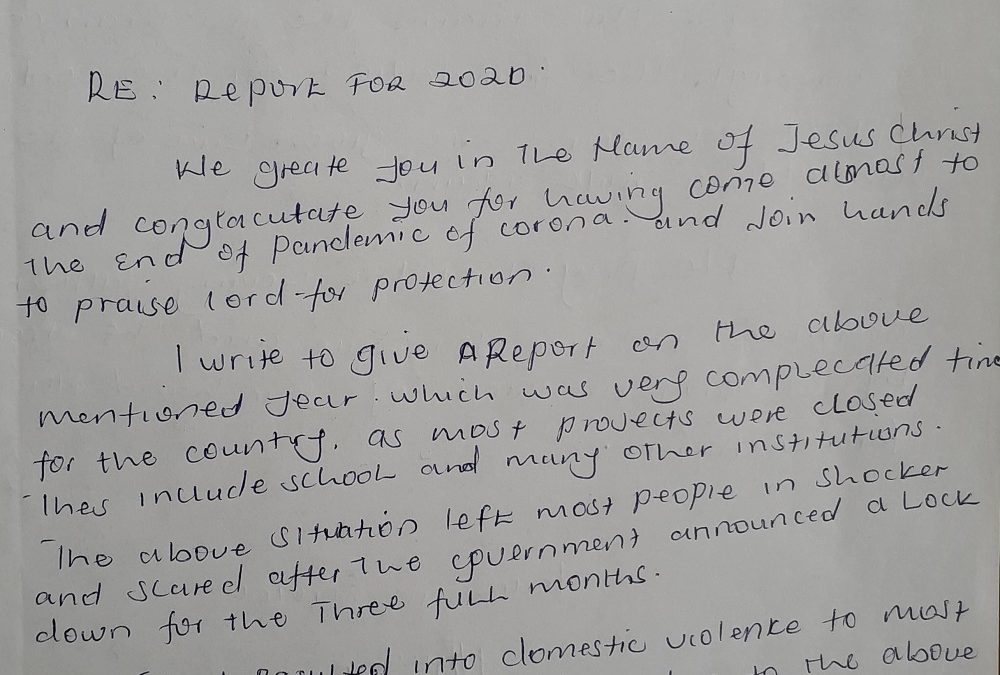 RE: Report FOR 2020.
We greate you in The Name of Jesus Christ
and conglacutate you for having come almost to
The End of pandemic of corona. and Join hands
to praise lord for protection.
I write to give A Report on the above
mentioned year. which was very complecated time
for the country, as most projects were closed
Thes include school and many other institutions.
The above situation left most people in shocker
and scared after The government announced a Lock
down for the Three full months.
into domestic violenke to most
the above